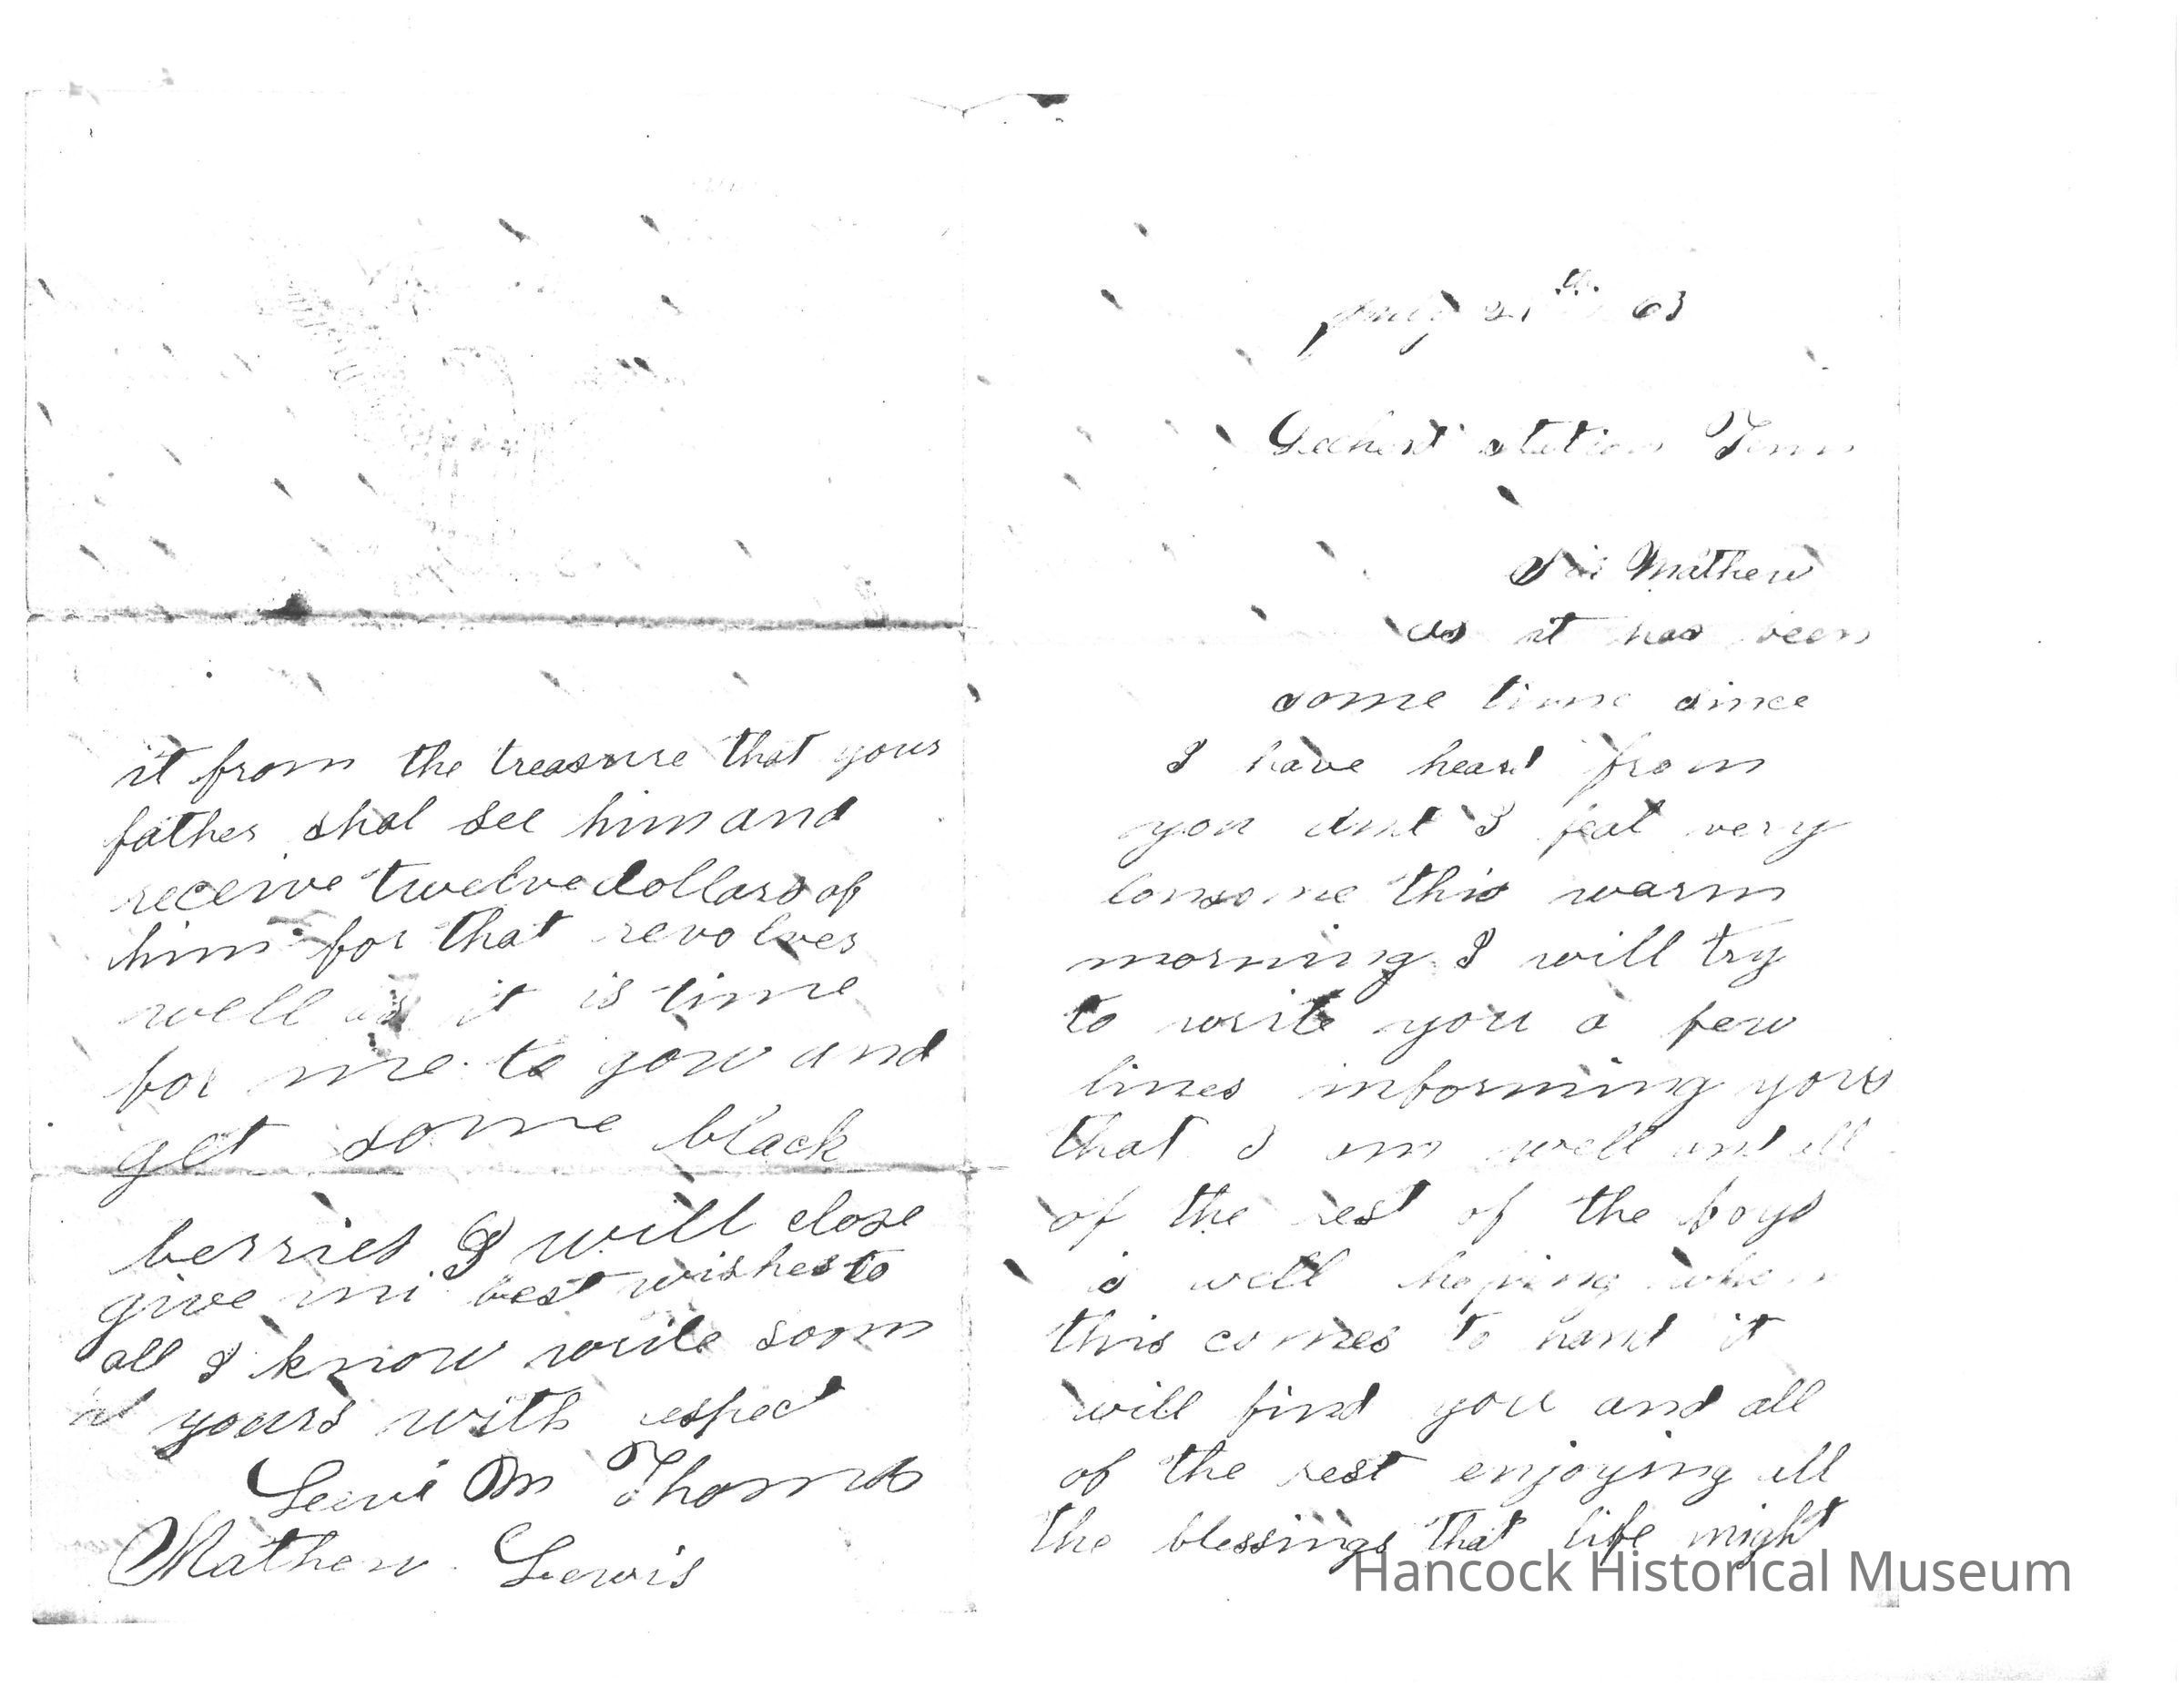 July 21th 63
Dechert station Tenn
Sir Mathew
as it has been
some time since
I have heard from
you and I feal very
lonsome this warm
morning I will try
to write you a few
lines informing you
that I am well and all
of the rest of the boys
is well hoping when
this comes to hand it
will find you and all
of the rest enjoying all
the blessings that life might
it from the treasure that your
father shal see him and
receive twelve dollars of
him for that revolver
well as it is time
for me to gow and
get some black
berries I will close
give mi best wishes to
all I know write soon
yours with respect
Levi M Thomas
Mathew Lewis
Hancock Historical Museum